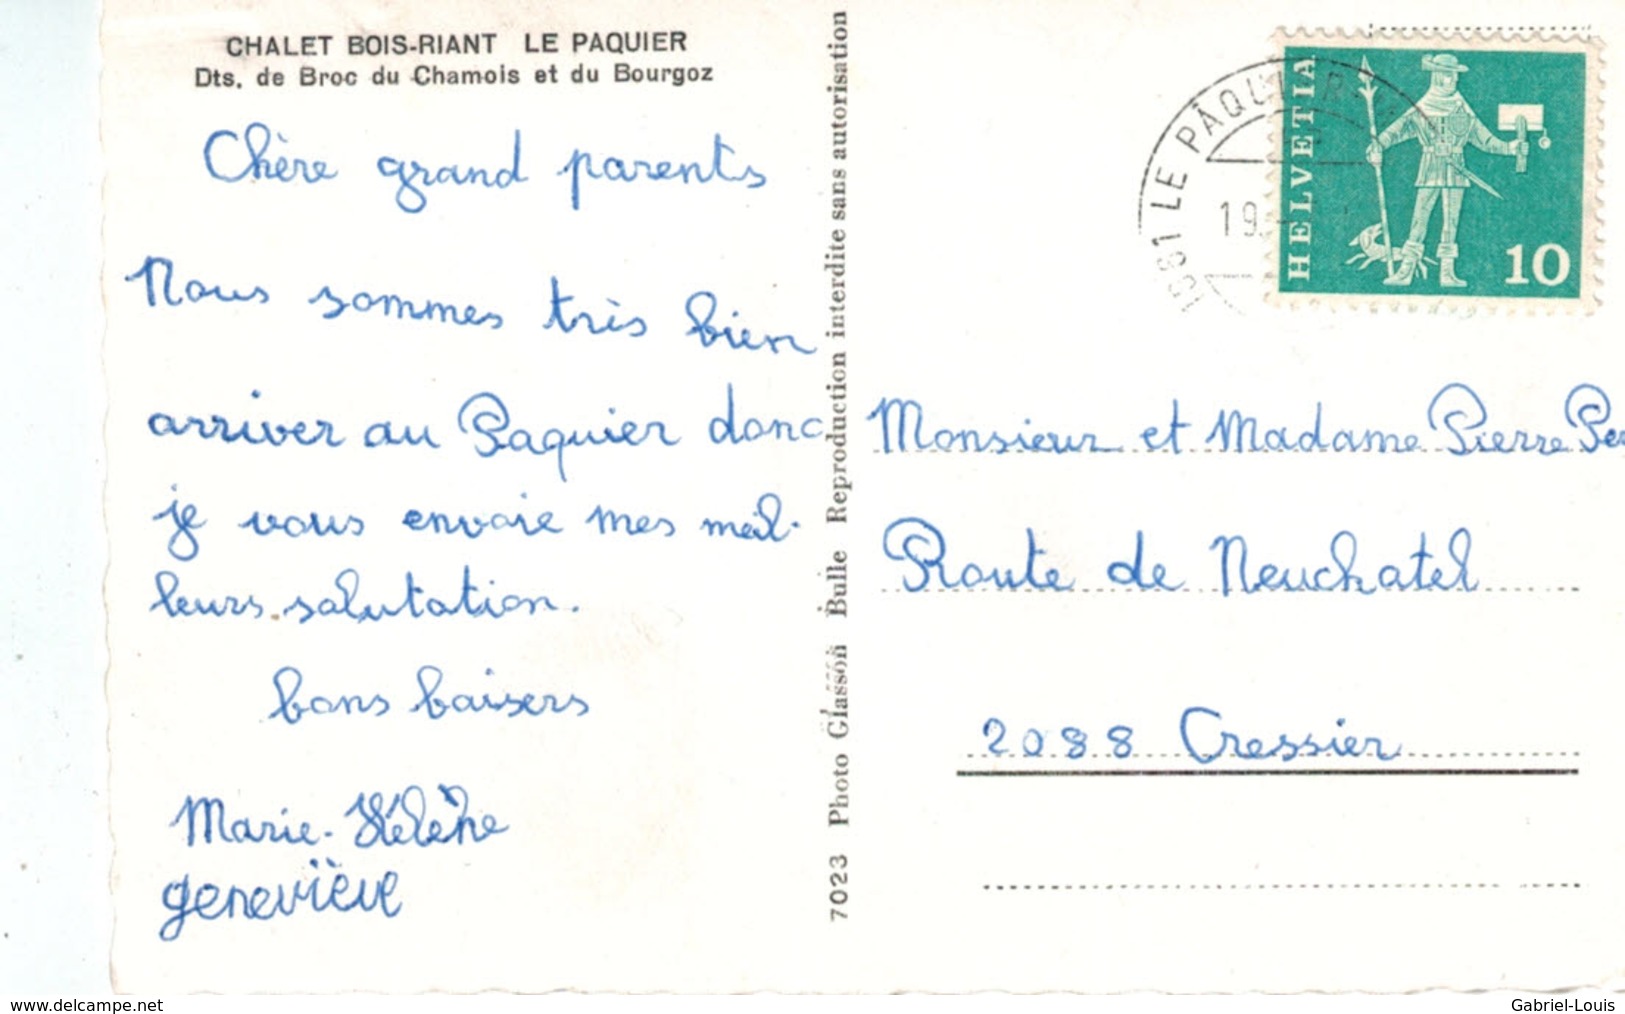 CHALET BOIS-RIANT LE PAQUIER
Dts. de Broc du Chamois et du Bourgoz
Chère grand parents
Nous sommes très bien
arriver au Paquier donc
je vous envoie mes meil-
leurs salutation.
bons baisers
Marie-Hélène
geneviève
7023 Photo Glasson Bulle Reproduction interdite sans autorisation
LE PÂQUIER
19.
HELVETIA
10
Monsieur et Madame Pierre
Route de Neuchatel
2088 Cressier
www.delcampe.net
Gabriel-Louis